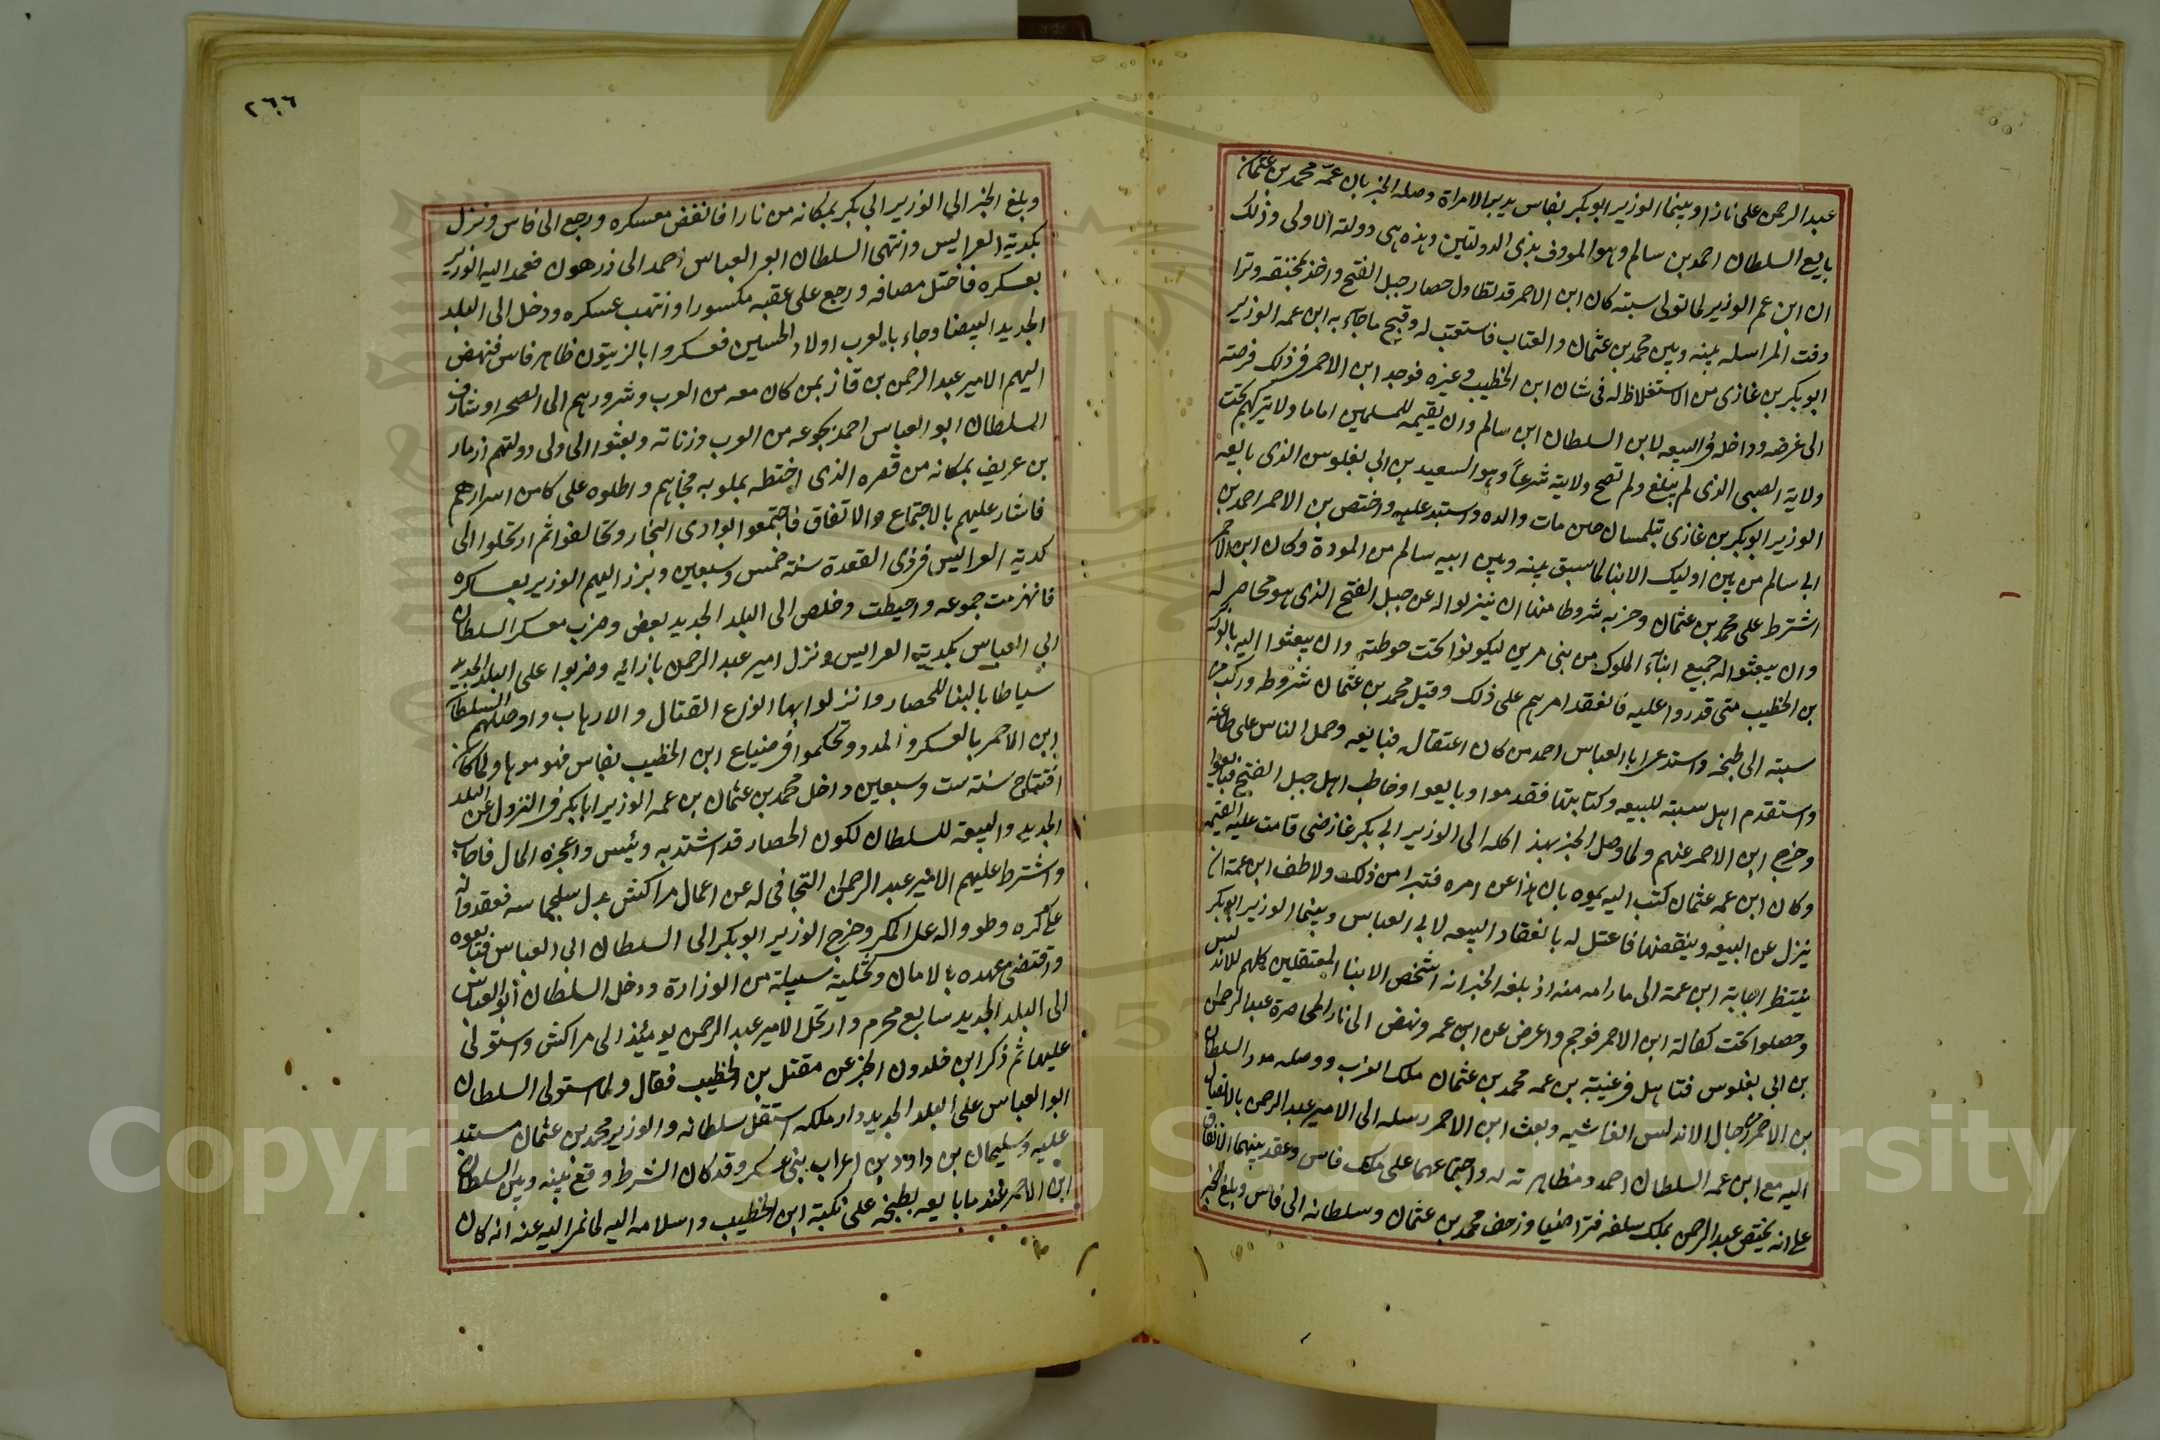 عبد الرحمن على تازا وبينما الوزير ابو بكر بفاس يدير الامراة وصله الخبر بان عمه محمد بن عثمان
بايع السلطان احمد بن سالم وهو المعروف بذي الدولتين وهذه هي دولته الاولى وذلك
ان ابن عم الوزير لما تولى سبته كان ابن الاحمر قد تطاول حصار جبل الفتح واخذ بمخنقه وترا
دفت المراسله بينه وبين محمد بن عثمان والعتاب فاستعتب له وقبح ما جآء به ابن عمه الوزير
ابو بكر بن غازى من الاستغلاظ له فى شان ابن الخطيب وغيره فوجد ابن الاحمر فى ذلك فرصته
الى غرضه وداخله فى البيعه لابن السلطان ابن سالم وان يقيمه للمسلمين اماما ولا يتركهم تحت
ولاية الصبى الذى لم يبلغ ولم تصح ولايته شرعاً وهو السعيد بن ابي بغلوس الذى بايعه
الوزير ابو بكر بن غازى بتلمسان حين مات والده واستبد عليه واختص بن الاحمر احمد بن
ابي سالم من بين اوليك الابنا لما سبق بينه وبين ابيه سالم من المودة وكان ابن الاحمر
اشترط على محمد بن عثمان وحزبه شروطا منها ان ينزلوا له عن جبل الفتح الذى هو محاصر له
وان يبعثوا له جميع ابنآء الملوك من بنى مرين ليكونوا تحت حوطته وان يبعثوا اليه بالوزير
بن الخطيب متى قدروا عليه فانعقد امرهم على ذلك وقبل محمد بن عثمان شروطه وركب من
سبته الى طنجه واستدعى ابا العباس احمد من كان اعتقال فبايعه وحمل الناس على طاعته
واستقدم اهل سبته للبيعه وكتابتها فقدموا وبايعوا وخاطب اهل جبل الفتح فبايعوا
وخرج ابن الاحمر عنهم ولما وصل الخبر بهذا كله الى الوزير ابي بكر غازى قامت عليه القيمه
وكان ابن عمه عثمان كتب اليه يموه بان هذا عن امره فتبرا من ذلك ولاطف ابن عمه ان
ينزل عن البيعه وينقضها فاعتل له بانعقاد البيعه لابي العباس وبينما الوزير ابو بكر
ينتظر اجابة ابن عمه الى ما رامه منه اذ بلغه الخبر انه اشخص الابنا المعتقلين كلهم للاندلس
وحصلوا تحت كفالة ابن الاحمر فوجم واعرض عن ابن عمه ونهض الى تازا لمحاصرة عبد الرحمن
بن ابي بغلوس فتاهل فى غيبته بن عمه محمد بن عثمان ملك الغرب ووصله مدد السلطان
بن الاحمر رجال الاندلس الغاشيه وبعث ابن الاحمر رسله الى الامير عبد الرحمن بالاتصال
اليه مع ابن عمه السلطان احمد ومظاهرته له واجتماعهما على ملك فاس وعقد بينهما الاتفاق
على انه يختص عبد الرحمن بملك سلفه فتراضيا وزحف محمد بن عثمان وسلطانه الى فاس وبلغ الخبر
٢٦٦
وبلغ الخبر الي الوزير ابي بكر بمكانه من تازا فانفض معسكره ورجع الى فاس ونزل
بكدية العرايس وانتهى السلطان ابو العباس احمد الى زرهون فعمد اليه الوزير
بعسكره فاختل مصافه ورجع على عقبه مكسورا وانتهب عسكره ودخل الى البلد
الجديد البيضا وجاء بالعرب اولاد الحسين فعسكروا بالزيتون ظاهر فاس فنهض
اليهم الامير عبد الرحمن بن قاز بمن كان معه من العرب وشرورهم الى الصحرا وشارف
السلطان ابو العباس احمد بجوعه من العرب وزناته وبعثوا الى ولى دولتهم ازمار
بن عريف بمكانه من قصره الذى اختطه بملويه فجاهم واطلوه على كامن اسرارهم
فاشار عليهم بالاجتماع والاتفاق فاجتمعوا بوادى النجار وتحالفوا ثم ارتحلوا الى
كدية العرايس فى ذى القعدة سنة خمس وسبعين وبرز اليهم الوزير بعساكره
فانهزمت جموعه واحيطت وخلص الى البلد الجديد بعض وضرب معسكر السلطان
ابي العباس بكدية العرايس ونزل امير عبد الرحمن بازائه وضربوا على البلد الجديد
سياطا بالبنا للحصار وانزلوا بها انواع القتال والارهاب واوصلهم السلطان
ابن الاحمر بالعسكر والمدد وتحكموا فى ضياع ابن الخطيب بفاس فهدموها ولما كان
افتتاح سنة ست وسبعين داخل محمد بن عثمان بن عمه الوزير ابا بكر فى النزول عن البلد
الجديد والبيعة للسلطان لكون الحصار قد اشتد به ويئس واعجزه المال فاجاب
واشترط عليهم الامير عبد الرحمن التجافى له عن اعمال مراكش بدل سلجماسه فعقدوا له
على كره وطووا له على المكر وخرج الوزير ابو بكر الى السلطان ابي العباس فبايعوه
واقتضى عهده بالامان وتخلية سبيله من الوزارة ودخل السلطان ابو العباس
الى البلد الجديد سابع محرم وارتحل الامير عبد الرحمن يومئذ الى مراكش واستولى
عليها ثم ذكر ابن خلدون الخبر عن مقتل بن الخطيب فقال ولما استولى السلطان
ابو العباس على البلد الجديد دار ملكه استقل سلطانه والوزير محمد بن عثمان مستبد
عليه وسليمان بن داود بن اعراب بنى عسكر وقد كان الشرط وقع بينه وبين السلطان
ابن الاحمر عند ما بايعه بطنجه على نكبة ابن الخطيب واسلامه اليه لما نمى اليه عنه انه كان
Copyright © King Saud University